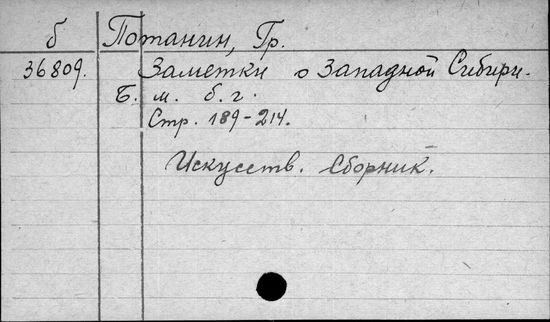 б Потанин, Гр.
36809. Заметки о Западной Сибири.
Б. м. б. г.
Стр. 189-214.
Искусств. сборник.